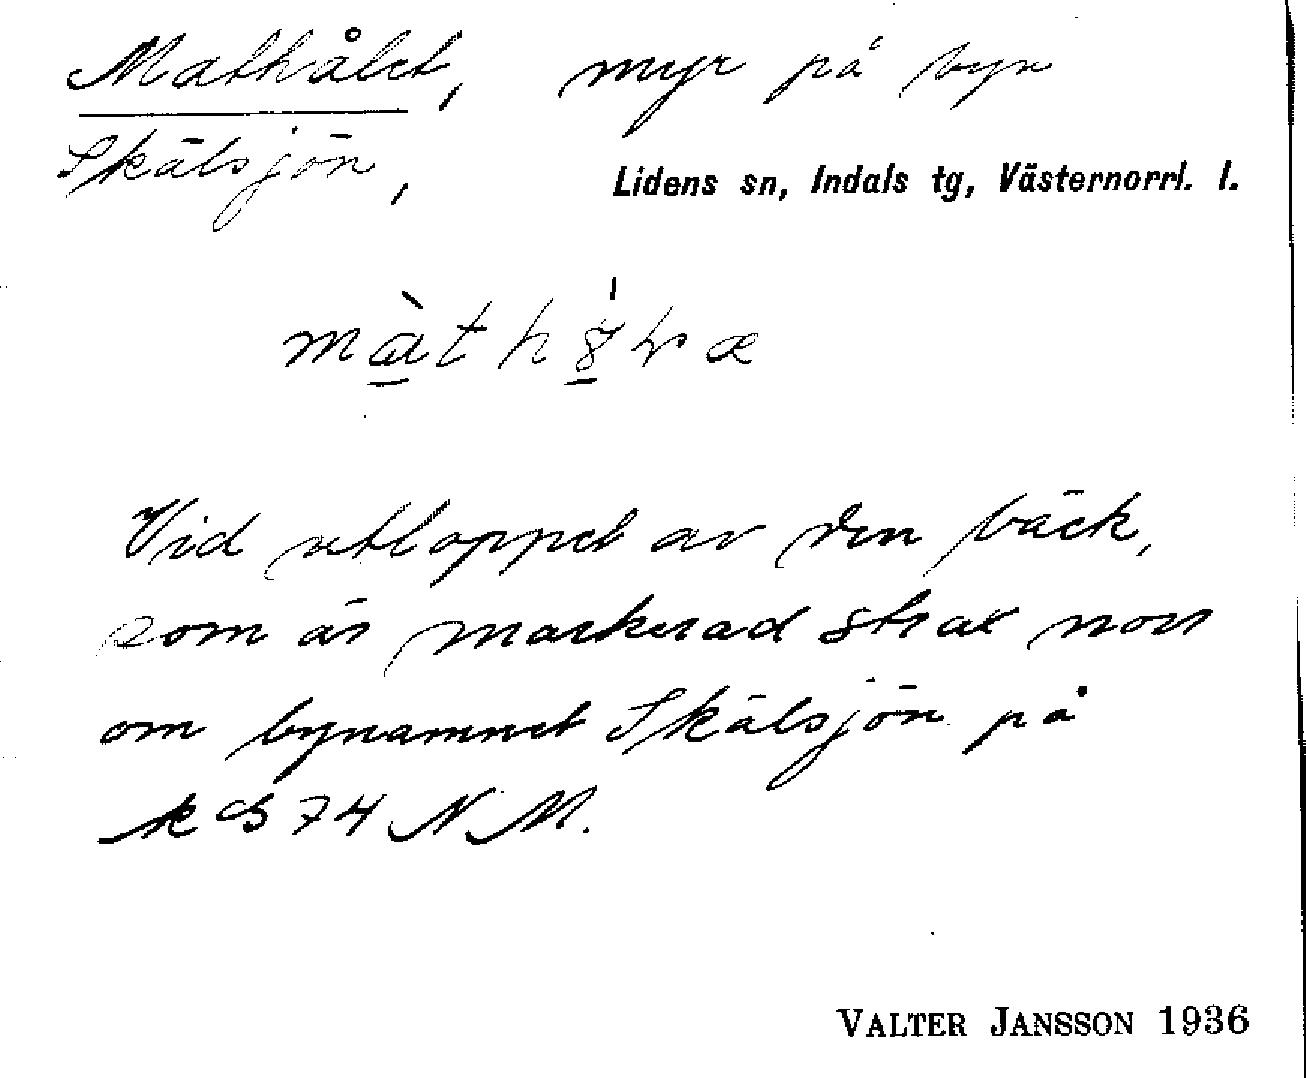 Mathålet, myr på byn
Skälsjön,
Lidens sn, Indals tg, Västernorrl. l.
Vid utloppet av den bäck,
som är markerad strax norr
om bynamnet Skälsjön på
k bl 74 N M.
VALTER JANSSON 1936